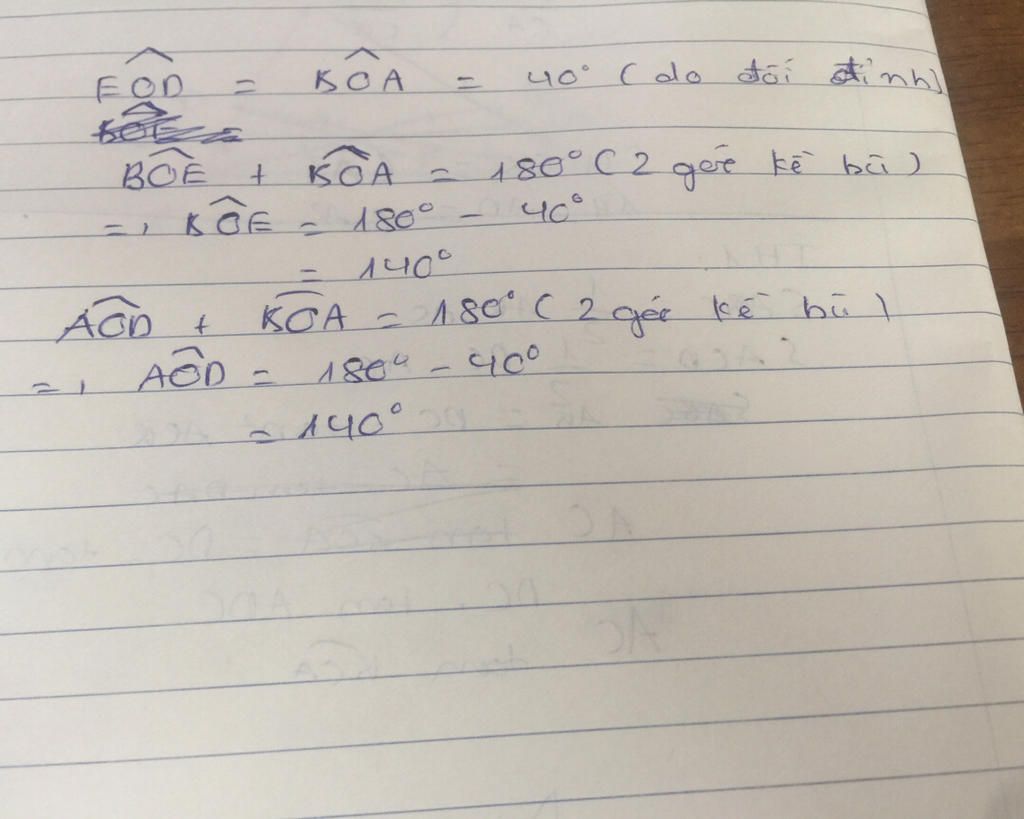 EOD = BOA = 40° (do đối đỉnh)
BOE + BOA = 180° (2 góc kề bù)
=, BOE = 180° - 40°
= 140°
AOD + BOA = 180° (2 góc kề bù)
=, AOD = 180° - 40°
= 140°